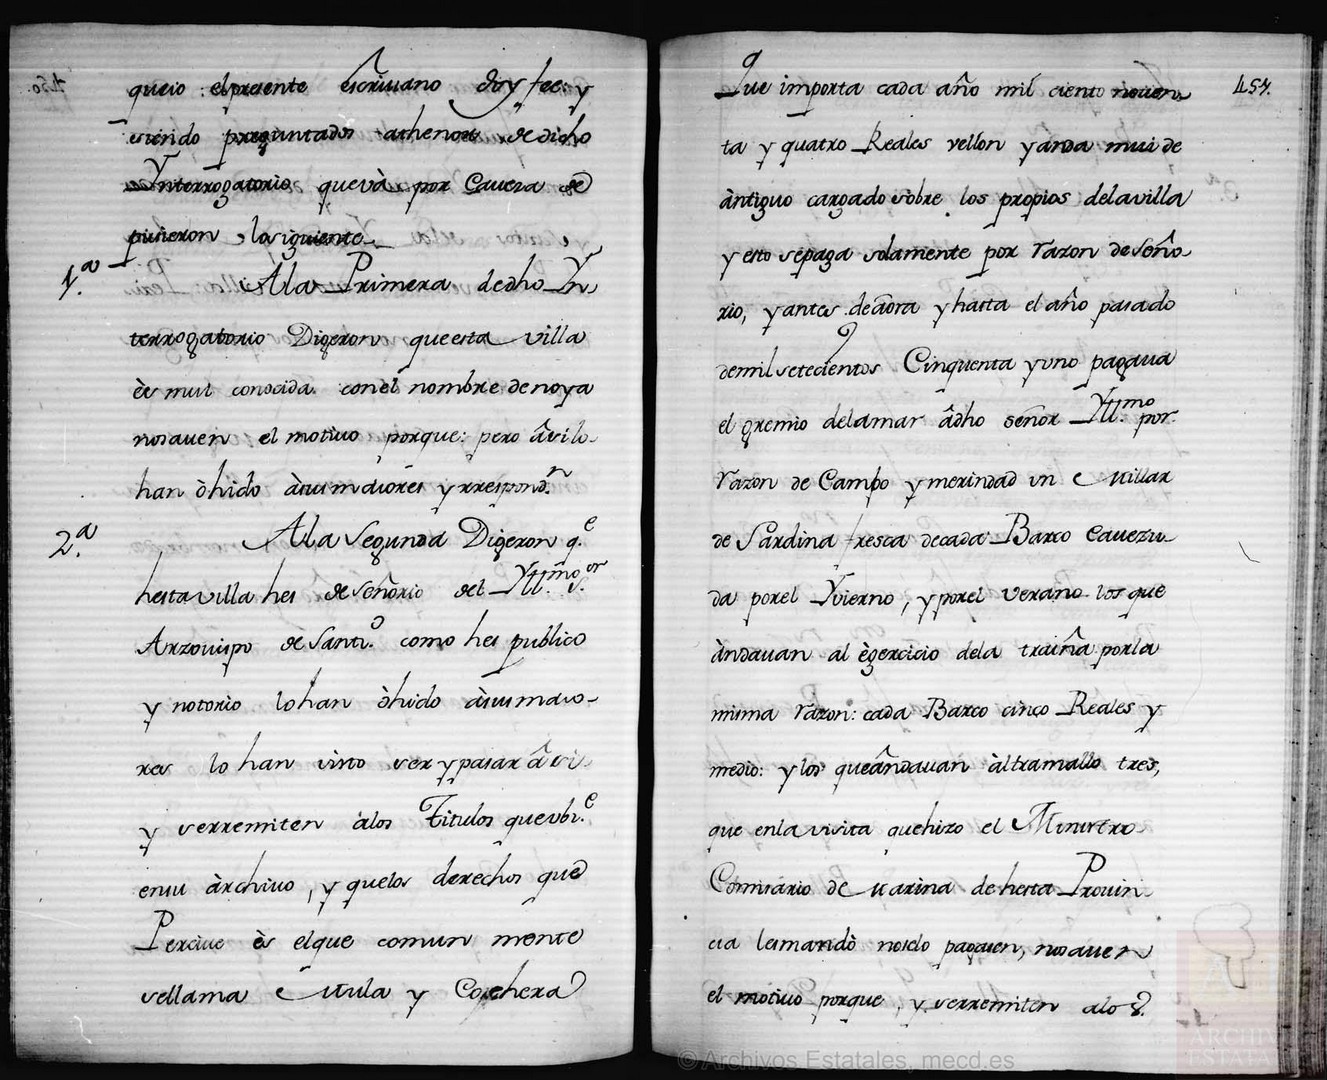 queio : elpresente escriuano doy fee: y
siendo preguntados athenor de dicho
Ynterrogatorio quevà por Caueza
pusieron losiguiente
1.ª Ala Primera dedho Yn
terrogatorio Digeron queesta villa
ès mui conocida conel nombre denoya
nosauen el motiuo porque: pero âsilo
han òhido àsusmaiores yrrespond.n
2.ª Ala Segunda Digeron q.e
hestavilla hes deseñorio del Yll.mo S.or
Arzouispo de Santi.o como hes publico
y notorio lohan òhido àsusmaio-
res lo han visto ser ypasar âsi
y serremiten àlos Titulos queobi.e
ensu àrchiuo, y quelos derechos que
Perciue ès elque comun mente
sellama Mula y Cochera
457.
Que importa cada año mil ciento nouen
ta y quatro Reales vellon yanda mui de
àntiguo cargado sobre los propios delavilla
y esto sepaga solamente por razon deseño
rio, yantes deaora yhasta el año pasado
demilsetecientos Cinquenta yuno pagaua
el gremio delamar âdho señor Yll.mo por
razon de Campo ymerindad un Millar
de Sardina fresca decada Barco Cauezu
da porel Yvierno, yporel verano los que
àndauan al ègercicio dela traiña porla
misma razon: cada Barco cinco Reales y
medio: ylos queândauan àltramallo tres,
que enla visita quehizo el Ministro
Comisàrio de Marina dehesta Prouin
cia lesmandò noselo pagasen, nosauen
el motiuo porque, y serremiten alos
© Archivos Estatales, mecd.es
ARCHIVOS
ESTATALES